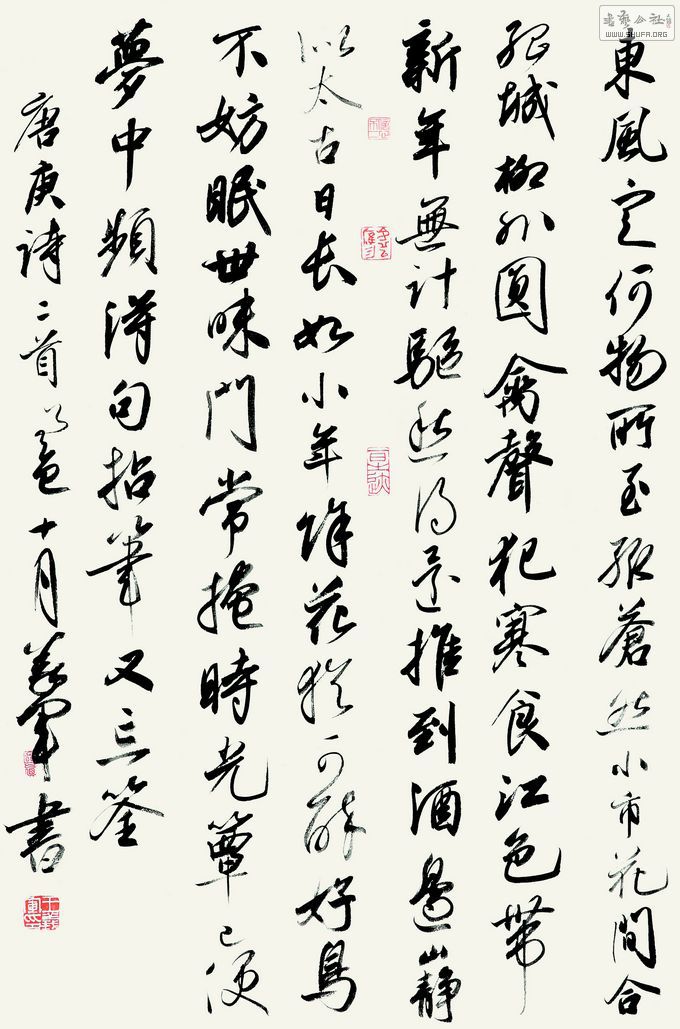 書藝公社
WWW.SHUFA.ORG
東風定何物所至輒蒼然小市花間合
孤城柳外圓禽聲犯寒食江色帶
新年無計驅愁得還推到酒邊山靜
似太古日長如小年餘花猶可醉好鳥
不妨眠世味門常掩時光簟已便
夢中頻得句拈筆又忘筌
唐庚詩二首十月義軍書